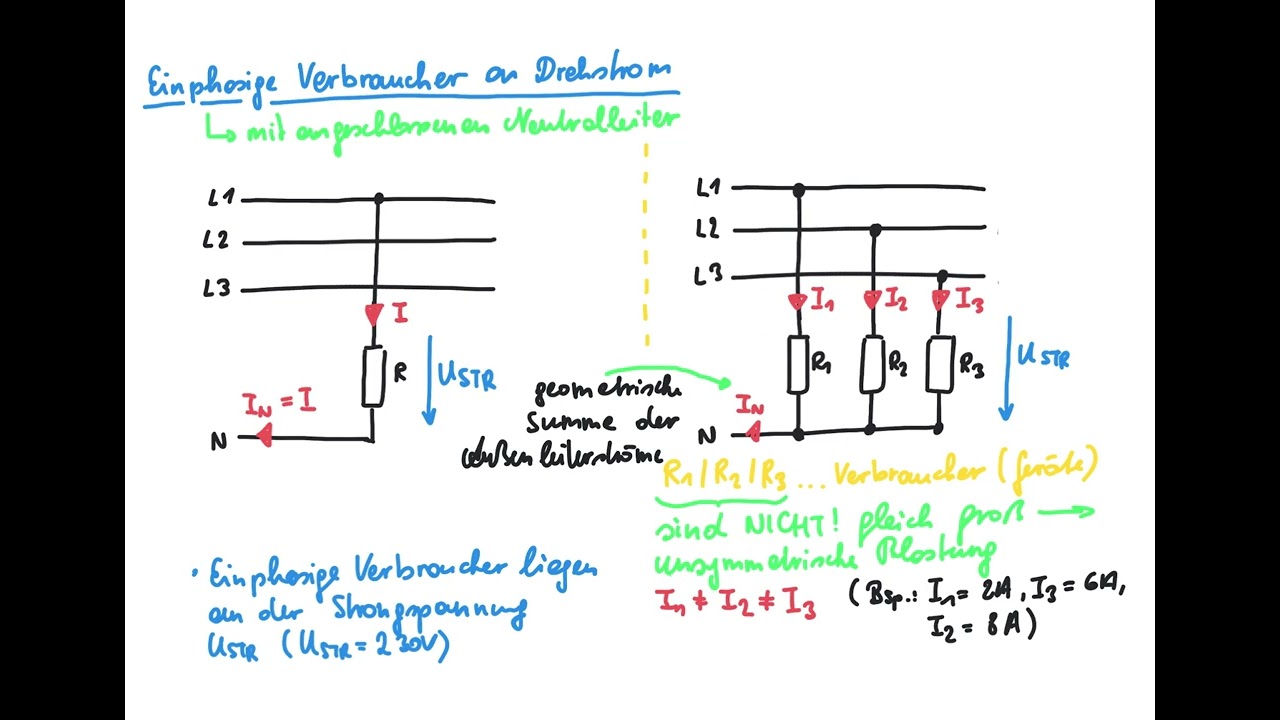 Einphasige Verbraucher an Drehstrom
↳ mit angeschlossenen Neutralleiter
L1
L2
L3
I
R
U_STR
I_N = I
N
L1
L2
L3
I_1
I_2
I_3
R_1
R_2
R_3
U_STR
I_N
N
geometrische
Summe der
Außenleiterströme
R_1 / R_2 / R_3 ... Verbraucher (Geräte)
sind NICHT! gleich groß →
unsymmetrische Blastung
I_1 ≠ I_2 ≠ I_3
(Bsp.: I_1 = 2A, I_3 = 6A,
I_2 = 8A)
· Einphasige Verbraucher liegen
an der Strangspannung
U_STR (U_STR = 230V)